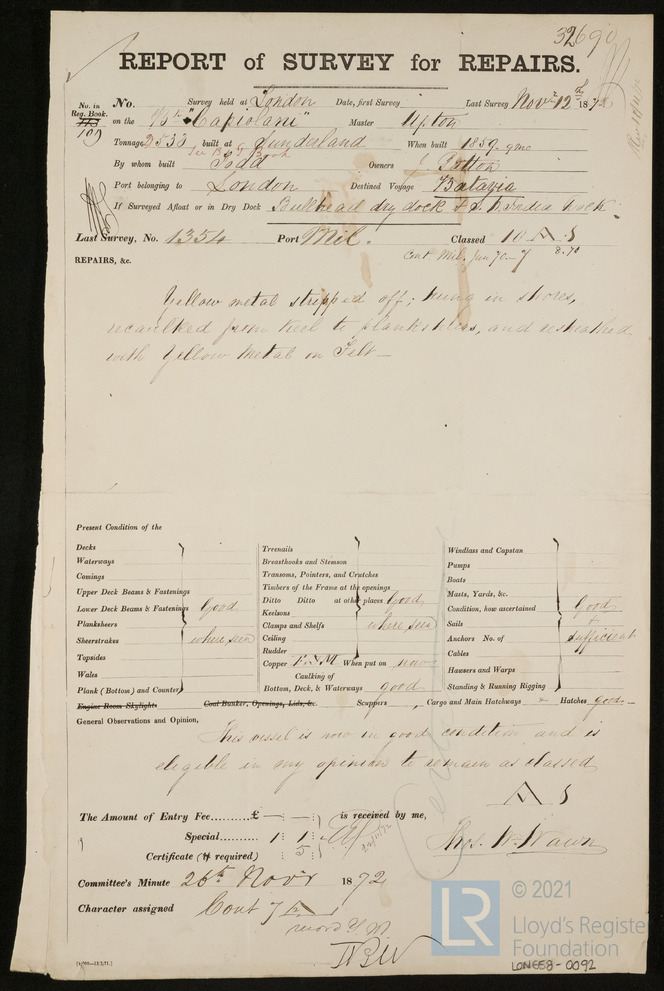 32690
REPORT of SURVEY for REPAIRS.
No. in Reg. Book. No. Survey held at London Date, first Survey Last Survey Novr 12 1872
109 on the "Capiolani" Master Upton
Tonnage 538 built at Sunderland When built 1859
By whom built Todd Owners Potton
Port belonging to London Destined Voyage Batavia
If Surveyed Afloat or in Dry Dock Bullhead dry dock & India Dock
Last Survey, No. 1354 Port Mil. Classed 10 A
REPAIRS, &c. Cont Mil. Jun 70 - 7 8.70
Yellow metal stripped off; hung in shores,
recaulked from Keel to planksheers, and resheathed
with Yellow Metal on Felt —
Present Condition of the
Decks
Waterways
Comings
Upper Deck Beams & Fastenings
Lower Deck Beams & Fastenings Good
Planksheers
Sheerstrakes where seen
Topsides
Wales
Plank (Bottom) and Counter
Engine Room Skylights Coal Bunker, Openings, Lids, &c.
Treenails
Breasthooks and Stemson
Transoms, Pointers, and Crutches
Timbers of the Frame at the openings
Ditto Ditto at other places Good
Keelsons
Clamps and Shelfs where seen
Ceiling
Rudder
Copper F. & Y M When put on now
Caulking of
Bottom, Deck, & Waterways good
Windlass and Capstan
Pumps
Boats
Masts, Yards, &c.
Condition, how ascertained Good
Sails &
Anchors No. of Sufficient
Cables
Hawsers and Warps
Standing & Running Rigging
Scuppers , Cargo and Main Hatchways & Hatches good
General Observations and Opinion,
This vessel is now in good condition and is
eligible in my opinion to remain as classed
A
The Amount of Entry Fee..........£ is received by me,
Special.......... 1 1
Certificate (if required) 5
Thos. W. Wawn
Committee's Minute 26th Novr 1872
Character assigned Cont 7 A
record Y.M.
© 2021
LR
Lloyd's Register
Foundation
LON658-0092